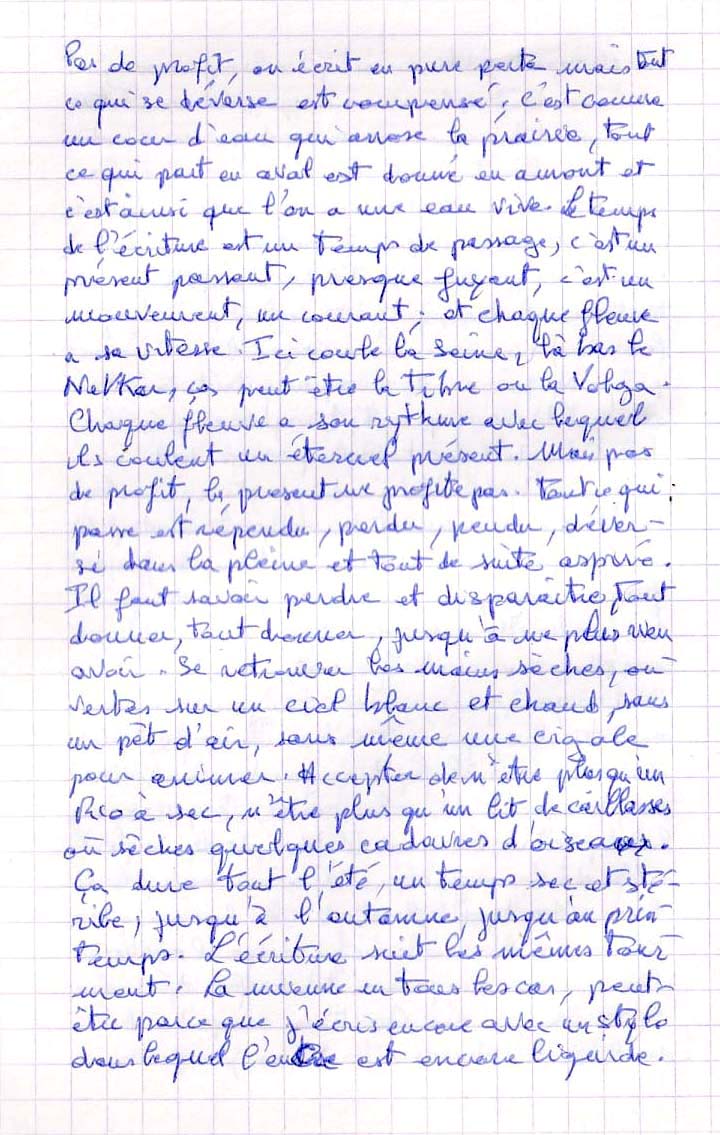 Pas de profit, on écrit en pure perte mais tout
ce qui se déverse est compensé, c'est comme
un cour d'eau qui arrose la prairie, tout
ce qui part en aval est donné en amont et
c'est ainsi que l'on a une eau vive. Le temps
de l'écriture est un temps de passage, c'est un
présent passant, presque fuyant, c'est un
mouvement, un courant ; et chaque fleuve
a sa vitesse. Ici coule la Seine, là bas le
Nekkar, ça peut être le Tibre ou la Volga.
Chaque fleuve a son rythme avec lequel
ils coulent un éternel présent. Mais pas
de profit, le présent ne profite pas. Tout ce qui
passe est répendu, perdu, rendu, déver-
sé dans la pleine et tout de suite aspiré.
Il faut savoir perdre et disparaître, tout
donner, tout donner, jusqu'à ne plus rien
avoir. Se retrouver les mains sèches, ou-
vertes sur un ciel blanc et chaud, sans
un pèt d'air, sans même une cigale
pour animer. Accepter de n'être plus qu'un
Rio à sec, n'être plus qu'un lit de caillasses
où sèches quelques cadavres d'oiseaux.
Ça dure tout l'été, un temps sec et sté-
rile, jusqu'à l'automne, jusqu'au prin-
temps. L'écriture suit les mêmes tour-
ment. La mienne en tous les cas, peut-
être parce que j'écris encore avec un stylo
dans lequel l'encre est encore liquide.